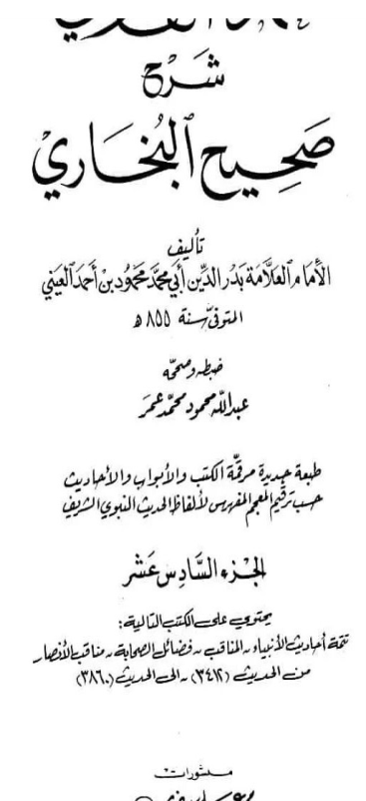 شرح
صحيح البخاري
تأليف
الأمام العلامة بدر الدين أبي محمد محمود بن أحمد العيني
المتوفى سنة ٨٥٥ هـ
ضبطه وصححه
عبد الله محمود محمد عمر
طبعة جديدة مرقمة الكتب والأبواب والأحاديث
حسب ترقيم المعجم المفهرس لألفاظ الحديث النبوي الشريف
الجزء السادس عشر
يحتوي على الكتب التالية:
تتمة أحاديث الأنبياء - المناقب - فضائل الصحابة - مناقب الأنصار
من الحديث (٣٤١٢) - إلى الحديث (٣٨٦٠)
منشورات